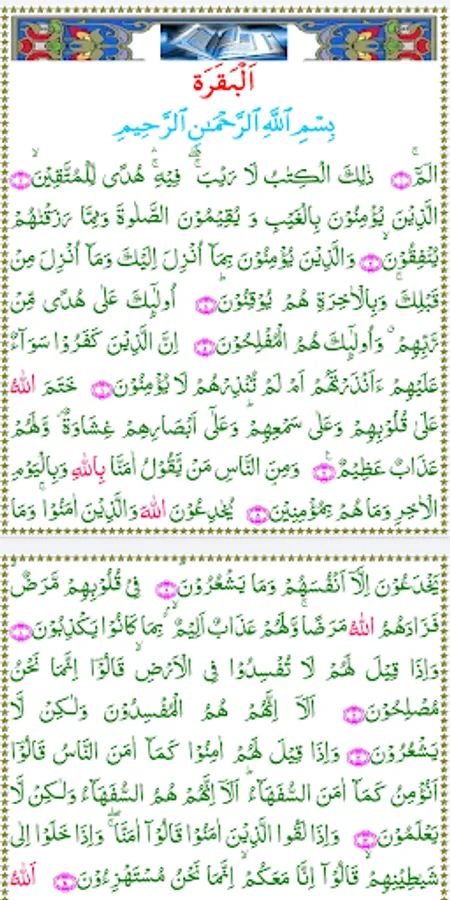 اَلْبَقَرَة
بِسْمِ اللَّهِ الرَّحْمَـٰنِ الرَّحِيمِ
الٓمّٓ ۚ ۝١ ذٰلِكَ الْكِتٰبُ لَا رَيْبَ ۛۚ فِيْهِ ۛۚ هُدًى لِّلْمُتَّقِيْنَ ۙ ۝٢
الَّذِيْنَ يُؤْمِنُوْنَ بِالْغَيْبِ وَ يُقِيْمُوْنَ الصَّلٰوةَ وَمِمَّا رَزَقْنٰهُمْ
يُنْفِقُوْنَ ۙ ۝٣ وَالَّذِيْنَ يُؤْمِنُوْنَ بِمَآ اُنْزِلَ اِلَيْكَ وَمَآ اُنْزِلَ مِنْ
قَبْلِكَ ۚ وَبِالْاٰخِرَةِ هُمْ يُوْقِنُوْنَ ؕ ۝٤ اُولٰٓئِكَ عَلٰى هُدًى مِّنْ
رَّبِّهِمْ ۗ وَاُولٰٓئِكَ هُمُ الْمُفْلِحُوْنَ ۝٥ اِنَّ الَّذِيْنَ كَفَرُوْا سَوَآءٌ
عَلَيْهِمْ ءَاَنْذَرْتَهُمْ اَمْ لَمْ تُنْذِرْهُمْ لَا يُؤْمِنُوْنَ ۝٦ خَتَمَ اللّٰهُ
عَلٰى قُلُوْبِهِمْ وَعَلٰى سَمْعِهِمْ ؕ وَعَلٰٓى اَبْصَارِهِمْ غِشَاوَةٌ ۫ وَّلَهُمْ
عَذَابٌ عَظِيْمٌ ۠ ۝٧ وَمِنَ النَّاسِ مَنْ يَّقُوْلُ اٰمَنَّا بِاللّٰهِ وَبِالْيَوْمِ
الْاٰخِرِ وَمَا هُمْ بِمُؤْمِنِيْنَ ۘ ۝٨ يُخٰدِعُوْنَ اللّٰهَ وَالَّذِيْنَ اٰمَنُوْا ۚ وَمَا
يَخْدَعُوْنَ اِلَّآ اَنْفُسَهُمْ وَمَا يَشْعُرُوْنَ ؕ ۝٩ فِيْ قُلُوْبِهِمْ مَّرَضٌ ۙ
فَزَادَهُمُ اللّٰهُ مَرَضًا ۚ وَلَهُمْ عَذَابٌ اَلِيْمٌ ۢ ۙ بِمَا كَانُوْا يَكْذِبُوْنَ ۝١٠
وَاِذَا قِيْلَ لَهُمْ لَا تُفْسِدُوْا فِى الْاَرْضِ ۙ قَالُوْٓا اِنَّمَا نَحْنُ
مُصْلِحُوْنَ ۝١١ اَلَآ اِنَّهُمْ هُمُ الْمُفْسِدُوْنَ وَلٰكِنْ لَّا
يَشْعُرُوْنَ ۝١٢ وَاِذَا قِيْلَ لَهُمْ اٰمِنُوْا كَمَآ اٰمَنَ النَّاسُ قَالُوْٓا
اَنُؤْمِنُ كَمَآ اٰمَنَ السُّفَهَآءُ ؕ اَلَآ اِنَّهُمْ هُمُ السُّفَهَآءُ وَلٰكِنْ لَّا
يَعْلَمُوْنَ ۝١٣ وَاِذَا لَقُوا الَّذِيْنَ اٰمَنُوْا قَالُوْٓا اٰمَنَّا ۖۚ وَاِذَا خَلَوْا اِلٰى
شَيٰطِيْنِهِمْ ۙ قَالُوْٓا اِنَّا مَعَكُمْ ۙ اِنَّمَا نَحْنُ مُسْتَهْزِءُوْنَ ۝١٤ اَللّٰهُ